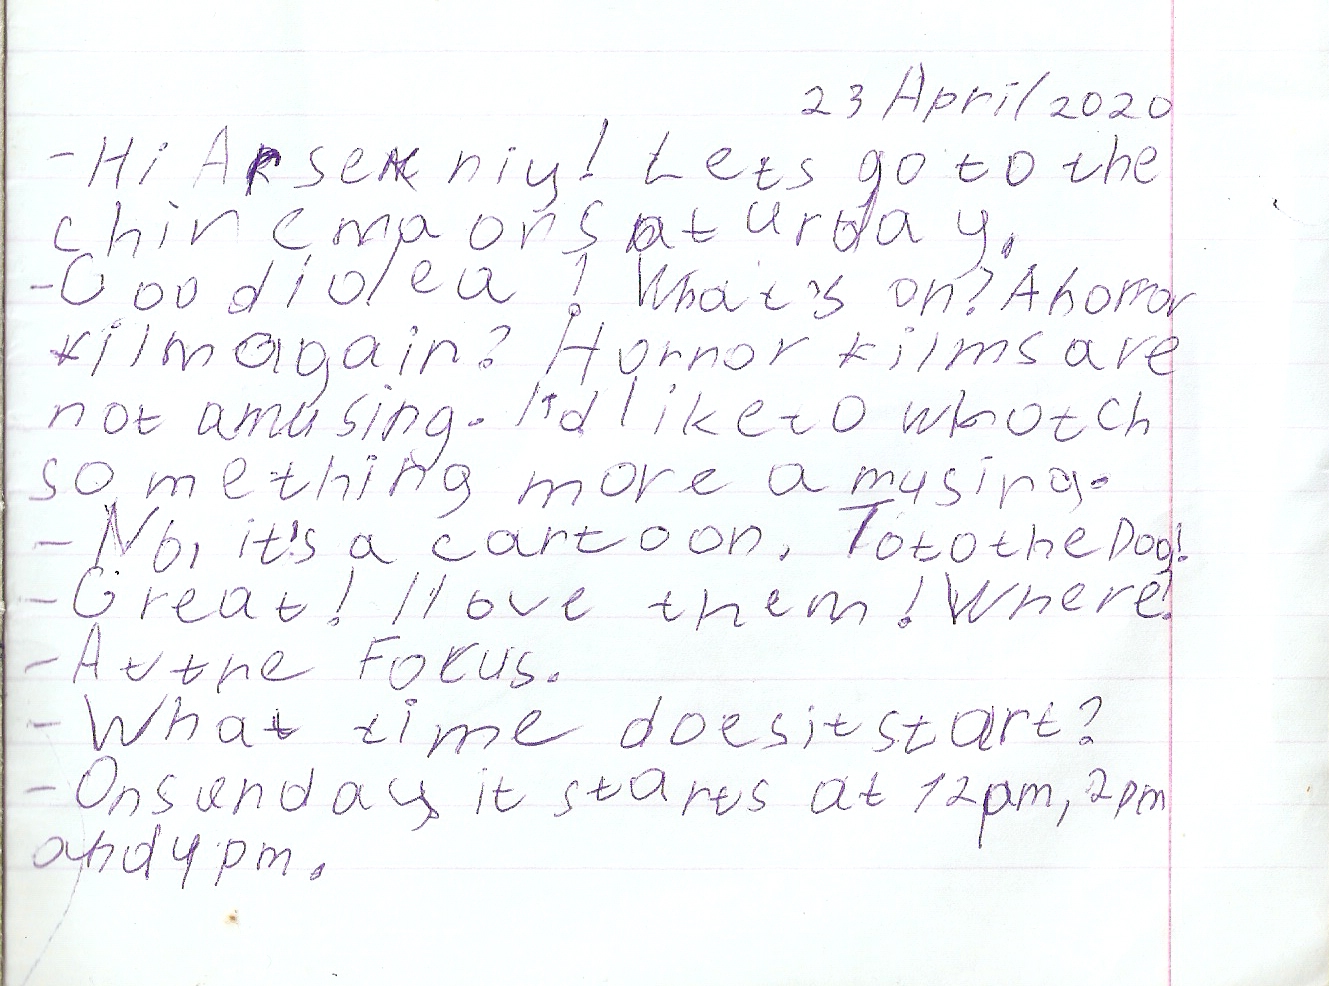 23 April 2020
- Hi Arseniy! Lets go to the
chinema on Saturday.
- Good idea! What's on? A horror
film again? Horror films are
not amusing. I'd like to whotch
something more amusing.
- No, it's a cartoon. Toto the Dog!
- Great! I love them! Where?
- At the Fokus.
- What time does it start?
- On sunday it starts at 12pm, 2pm
and 4 pm.